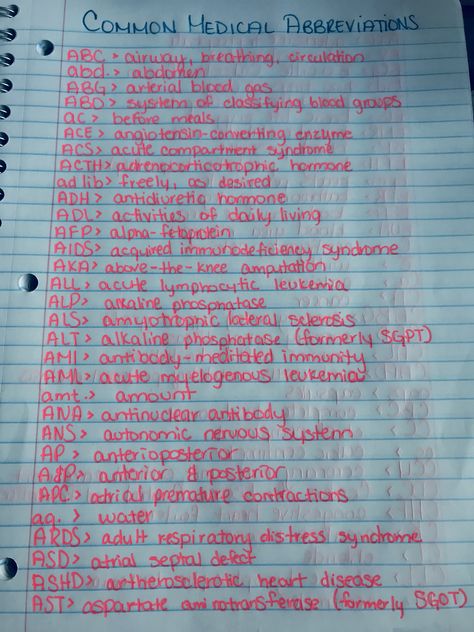 COMMON MEDICAL ABBREVIATIONS
ABC > airway, breathing, circulation
abd. > abdomen
ABG > arterial blood gas
ABO > system of classifying blood groups
ac > before meals
ACE > angiotensin-converting enzyme
ACS > acute compartment syndrome
ACTH > adrenocorticotrophic hormone
ad lib > freely, as desired
ADH > antidiuretic hormone
ADL > activities of daily living
AFP > alpha-fetoprotein
AIDS > acquired immunodeficiency syndrome
AKA > above-the-knee amputation
ALL > acute lymphocytic leukemia
ALP > alkaline phosphatase
ALS > amyotrophic lateral sclerosis
ALT > alkaline phosphatase (formerly SGPT)
AMI > antibody-meditated immunity
AML > acute myelogenous leukemia
amt. > amount
ANA > antinuclear antibody
ANS > autonomic nervous system
AP > anterioposterior
A&P > anterior & posterior
APC > atrial premature contractions
aq. > water
ARDS > adult respiratory distress syndrome
ASD > atrial septal defect
ASHD > artherosclerotic heart disease
AST > aspartate aminotransferase (formerly SGOT)